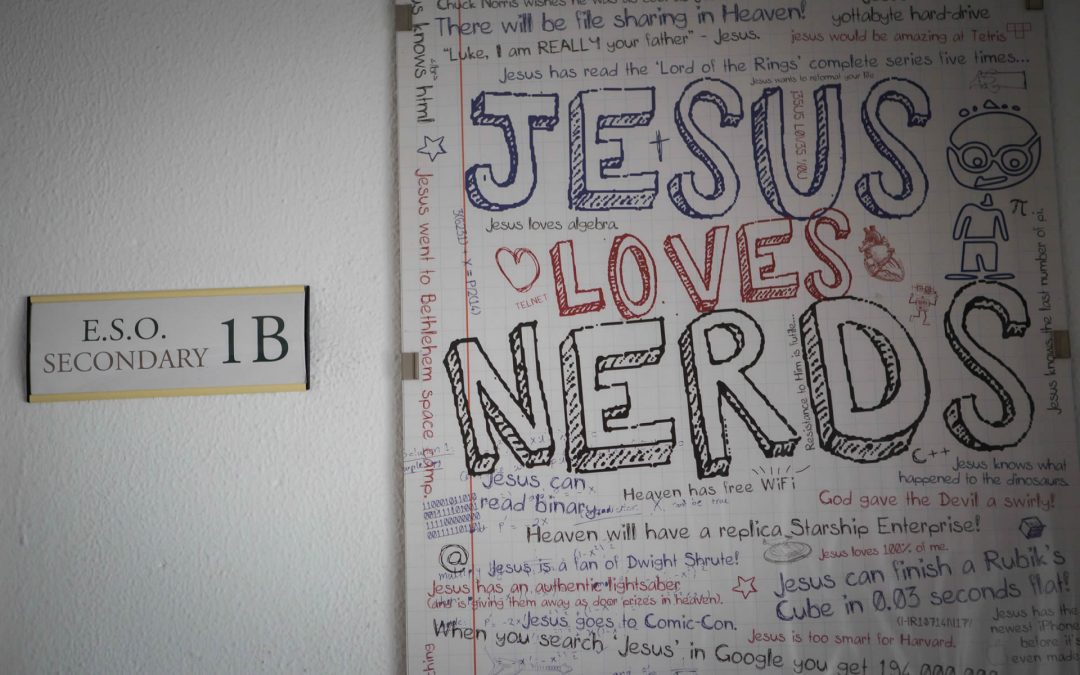 E.S.O.
SECONDARY 1B
Chuck Norris wishes he was
There will be file sharing in Heaven!
yottabyte hard-drive
"Luke, I am REALLY your father" - Jesus.
jesus would be amazing at Tetris
Jesus has read the 'Lord of the Rings' complete series five times...
Jesus wants to reformat your life
us knows html
JESUS
J3SUS LOV3S YOU
Jesus loves algebra.
π
LOVES
TELNET
Jesus went to Bethlehem space camp.
NERDS
Resistance to Him is futile...
Jesus knows the last number of pi.
C++
Jesus knows what
happened to the dinosaurs.
Jesus can
read binary
Heaven has free WiFi
God gave the Devil a swirly!
110001011010
001111101001
111100000000
Heaven will have a replica Starship Enterprise!
@
Jesus is a fan of Dwight Shrute!
Jesus loves 100% of me.
Jesus has an authentic lightsaber
(and is giving them away as door prizes in heaven).
Jesus can finish a Rubik's
Cube in 0.03 seconds flat!
Jesus goes to Comic-Con.
Jesus has the
newest iPhone
before it's
even made
Jesus is too smart for Harvard.
When you search 'Jesus' in Google you get 194,000,000